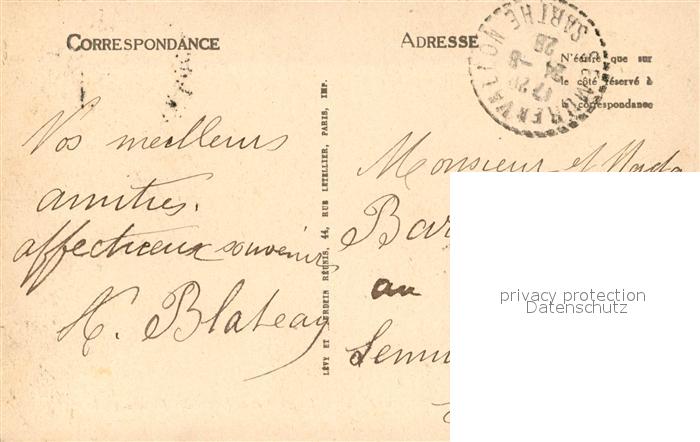 CORRESPONDANCE
ADRESSE
N'écrire que sur
le côté réservé à
la correspondance
SARTHE
17 20
24 -8
26
Vos meilleurs
amitiés.
affectueux souvenirs
Blateau
LÉVY ET NEURDEIN RÉUNIS, 44, RUE LETELLIER, PARIS, IMP.
Monsieur et Mada
Bar
au
Semu
privacy protection
Datenschutz